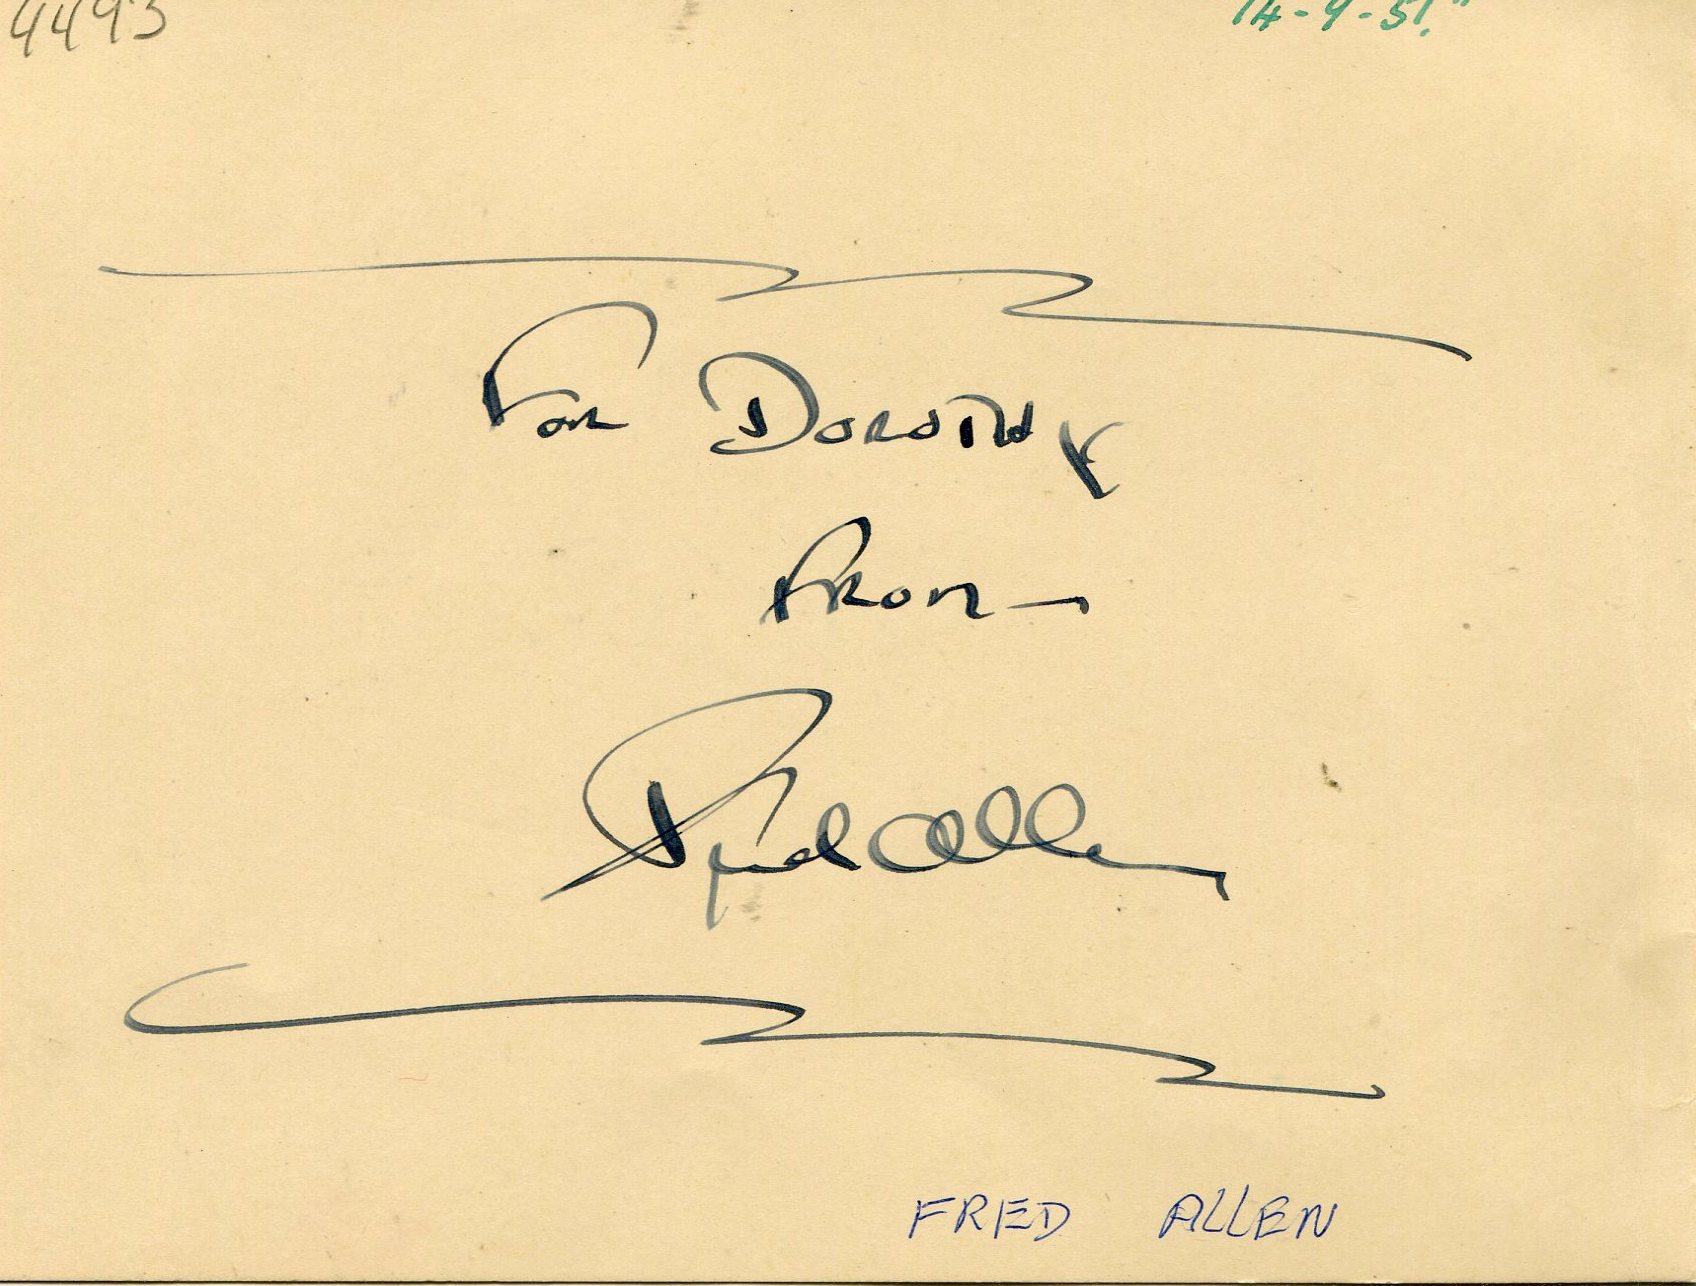 4493
14-9-51."
For Dorothy
From —
Fred Allen
FRED ALLEN